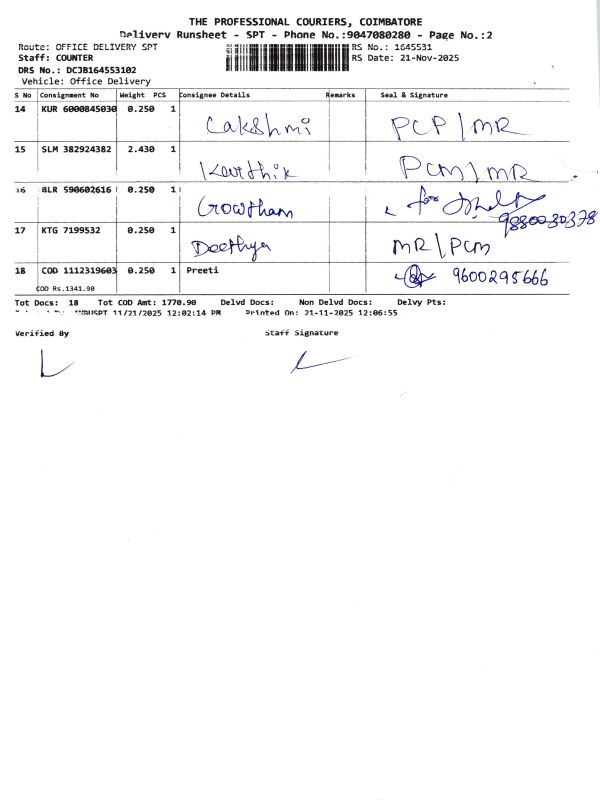 THE PROFESSIONAL COURIERS, COIMBATORE
Delivery Runsheet - SPT - Phone No.:9047080280 - Page No.:2
Route: OFFICE DELIVERY SPT RS No.: 1645531
Staff: COUNTER RS Date: 21-Nov-2025
DRS No.: DCJB164553102
Vehicle: Office Delivery
S No Consignment No Weight PCS Consignee Details Remarks Seal & Signature
14 KUR 6000845030 0.250 1 Lakshmi PCP/MR
15 SLM 382924382 2.430 1 Karthik PCM/MR
16 BLR 590602616 0.250 1 Gowtham for
9880030378
17 KTG 7199532 0.250 1 Deethya MR/PCM
18 COD 1112319603 0.250 1 Preeti 9600295666
COD Rs.1341.90
Tot Docs: 18 Tot COD Amt: 1770.90 Delvd Docs: Non Delvd Docs: Delvy Pts:
11/21/2025 12:02:14 PM Printed On: 21-11-2025 12:06:55
Verified By Staff Signature